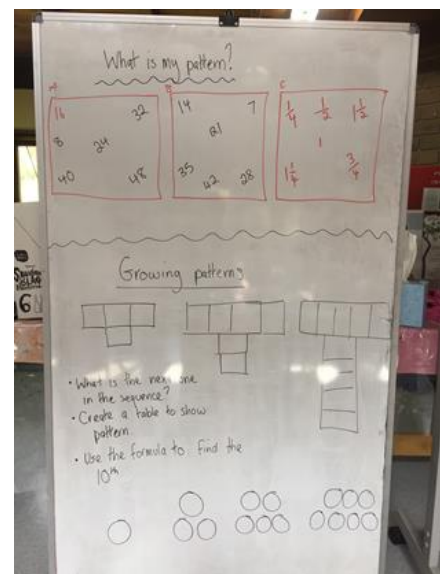 What is my pattern?
A B C
16 32
8 24
40 48
14 7
21
35 42 28
1/4 1/2 1 1/2
1
1 1/4 3/4
Growing patterns
• What is the next one
in the sequence?
• Create a table to show
pattern.
• Use the formula to find the
10th